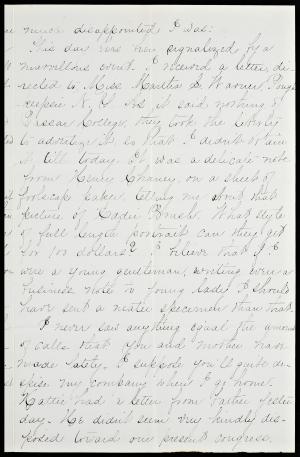 much disappointed I was.
This day was very signalized by a
marvellous event. I received a letter, di-
rected to Miss Martha S. Warner, Pough-
keepsie N. Y. As it said nothing of
Vassar College, they took the liberty
to advertize it, so that I didn't obtain
it till today. It was a delicate note
from Henry Chaney, on a sheet of
foolscap paper, telling me about that
picture of What style
of full length portrait can they get
for 100 dollars? I believe that if I
were a young gentleman, writing even a
business note to young ladies I should
have sent a neater specimen than that.
I never saw anything equal the amount
of calls that you and mother have
made lately. I suppose you'll quite de-
spise my company when I go home.
Hattie had a letter from Father yester-
day. He didn't seem very kindly dis-
posed toward our present congress.